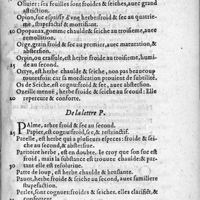 Oliuier: ses fueilles sont froides & seiches, auec grand
astriction.
Opion, suc espoissi d'vne herbe froid & sec au quatrie-
me, stupefactif & mortifiant.
40 Opopanax, gomme chaulde & seiche au tiers, auec
remollition.
Orge, grain froid & sec au premier, auec maturation, &
abstersion.
Orpin, ou crassule, est herbe froide au troisieme, humi-
de au second.
Ortye, est herbe chaulde & seiche, non pas beaucoup
toutesfois car la mordication prouient de subtilité.
Os de Seiche, est cognu froid, & sec, auec abstersion.
Ozeille menuë, herbe froide & seiche au second: Elle
20 repercute & conforte.
De la lettre P.
PAlme, arbre froid & sec au second.
Papier, est cognu froid, sec, & restrinctif.
Patelle, est herbe qui a plusieurs especes: froide & sei-
che au second, auec abstersion.
Parietoire herbe, est en doubte. Le croy que son suc est
froid, mais la substance est trouuee chaulde: & par-
tant elle est resolutiue.
Patte de loup, est herbe chaulde & humante.
Pauot, herbe froide & seiche au second, auec familiere
30 stupefaction.
Perles, sont cognues: froides & seiches. elles clarifiét, &
confortent